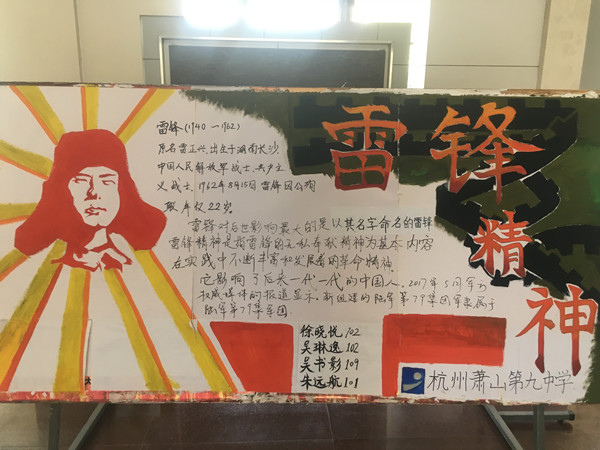 雷锋精神
雷锋(1940-1962)
原名雷正兴,出生于湖南长沙
中国人民解放军战士,共产主
义战士,1962年8月15日雷锋因公殉
职,年仅22岁。
雷锋对后世影响最大的是以其名字命名的雷锋
雷锋精神是指雷锋的无私奉献精神为基本内容
在实践中不断丰富和发展着的革命精神
它影响了后来一代一代的中国人。2017年5月军方
权威媒体的报道显示,新组建的陆军第79集团军隶属于
陆军第79集军团.
徐晓悦102
吴琳逸102
吴书影109
朱远航101
杭州萧山第九中学